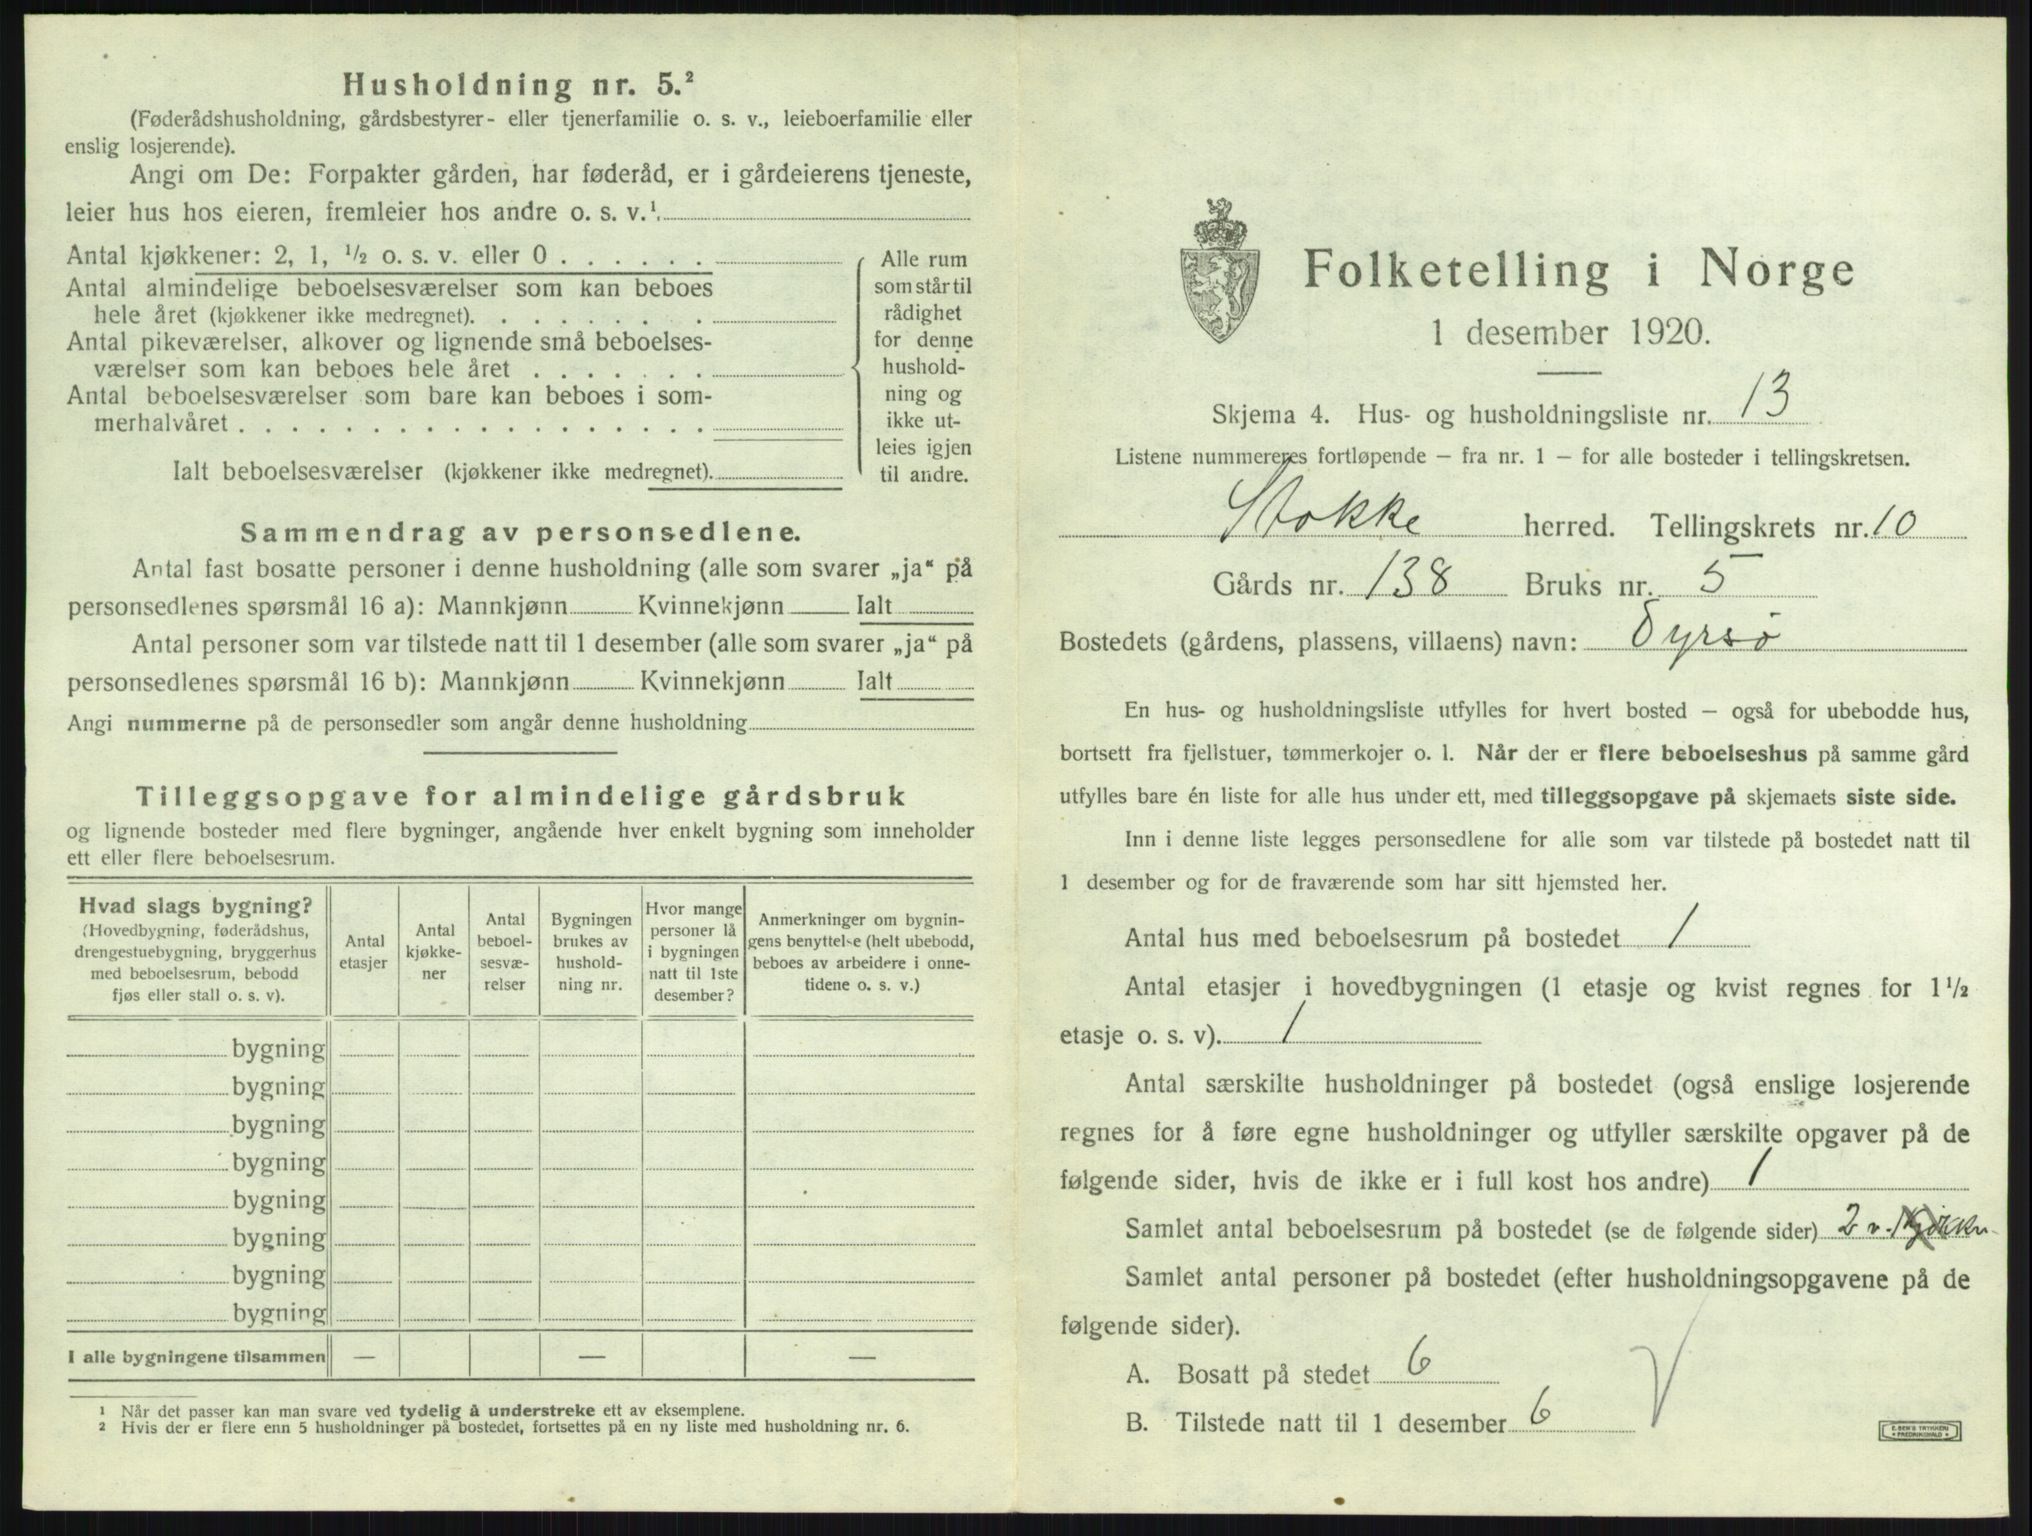 Husholdning nr. 5.²
(Føderådshusholdning, gårdsbestyrer- eller tjenerfamilie o. s. v., leieboerfamilie eller
enslig losjerende).
Angi om De: Forpakter gården, har føderåd, er i gårdeierens tjeneste,
leier hus hos eieren, fremleier hos andre o. s. v.¹.
Antal kjøkkener: 2, 1, ½ o. s. v. eller 0 . . . . . .
Antal almindelige beboelsesværelser som kan beboes
hele året (kjøkkener ikke medregnet). . . . . . . . .
Antal pikeværelser, alkover og lignende små beboelses-
værelser som kan beboes hele året . . . . . . .
Antal beboelsesværelser som bare kan beboes i som-
merhalvåret . . . . . . . . . . . . . . . . . .
Ialt beboelsesværelser (kjøkkener ikke medregnet).
Alle rum
som står til
rådighet
for denne
hushold-
ning og
ikke ut-
leies igjen
til andre.
Sammendrag av personsedlene.
Antal fast bosatte personer i denne husholdning (alle som svarer „ja“ på
personsedlenes spørsmål 16 a): Mannkjønn Kvinnekjønn Ialt
Antal personer som var tilstede natt til 1 desember (alle som svarer „ja“ på
personsedlenes spørsmål 16 b): Mannkjønn Kvinnekjønn Ialt
Angi nummerne på de personsedler som angår denne husholdning
Tilleggsopgave for almindelige gårdsbruk
og lignende bosteder med flere bygninger, angående hver enkelt bygning som inneholder
ett eller flere beboelsesrum.
Hvad slags bygning?
(Hovedbygning, føderådshus,
drengestuebygning, bryggerhus
med beboelsesrum, bebodd
fjøs eller stall o. s. v).
Antal
etasjer
Antal
kjøkke-
ner
Antal
beboel-
sesvæ-
relser
Bygningen
brukes av
hushold-
ning nr.
Hvor mange
personer lå
i bygningen
natt til 1ste
desember?
Anmerkninger om bygnin-
gens benyttelse (helt ubebodd,
beboes av arbeidere i onne-
tidene o. s. v.)
bygning
bygning
bygning
bygning
bygning
bygning
bygning
bygning
I alle bygningene tilsammen — — —
¹ Når det passer kan man svare ved tydelig å understreke ett av eksemplene.
² Hvis der er flere enn 5 husholdninger på bostedet, fortsettes på en ny liste med husholdning nr. 6.
Folketelling i Norge
1 desember 1920.
Skjema 4. Hus- og husholdningsliste nr. 13
Listene nummereres fortløpende — fra nr. 1 — for alle bosteder i tellingskretsen.
Stokke herred. Tellingskrets nr. 10
Gårds nr. 138 Bruks nr. 5
Bostedets (gårdens, plassens, villaens) navn: Dyrsø
En hus- og husholdningsliste utfylles for hvert bosted — også for ubebodde hus,
bortsett fra fjellstuer, tømmerkojer o. l. Når der er flere beboelseshus på samme gård
utfylles bare én liste for alle hus under ett, med tilleggsopgave på skjemaets siste side.
Inn i denne liste legges personsedlene for alle som var tilstede på bostedet natt til
1 desember og for de fraværende som har sitt hjemsted her.
Antal hus med beboelsesrum på bostedet 1
Antal etasjer i hovedbygningen (1 etasje og kvist regnes for 1½
etasje o. s. v). 1
Antal særskilte husholdninger på bostedet (også enslige losjerende
regnes for å føre egne husholdninger og utfyller særskilte opgaver på de
følgende sider, hvis de ikke er i full kost hos andre) 1
Samlet antal beboelsesrum på bostedet (se de følgende sider) 2 v.
Samlet antal personer på bostedet (efter husholdningsopgavene på de
følgende sider).
A. Bosatt på stedet 6
B. Tilstede natt til 1 desember 6